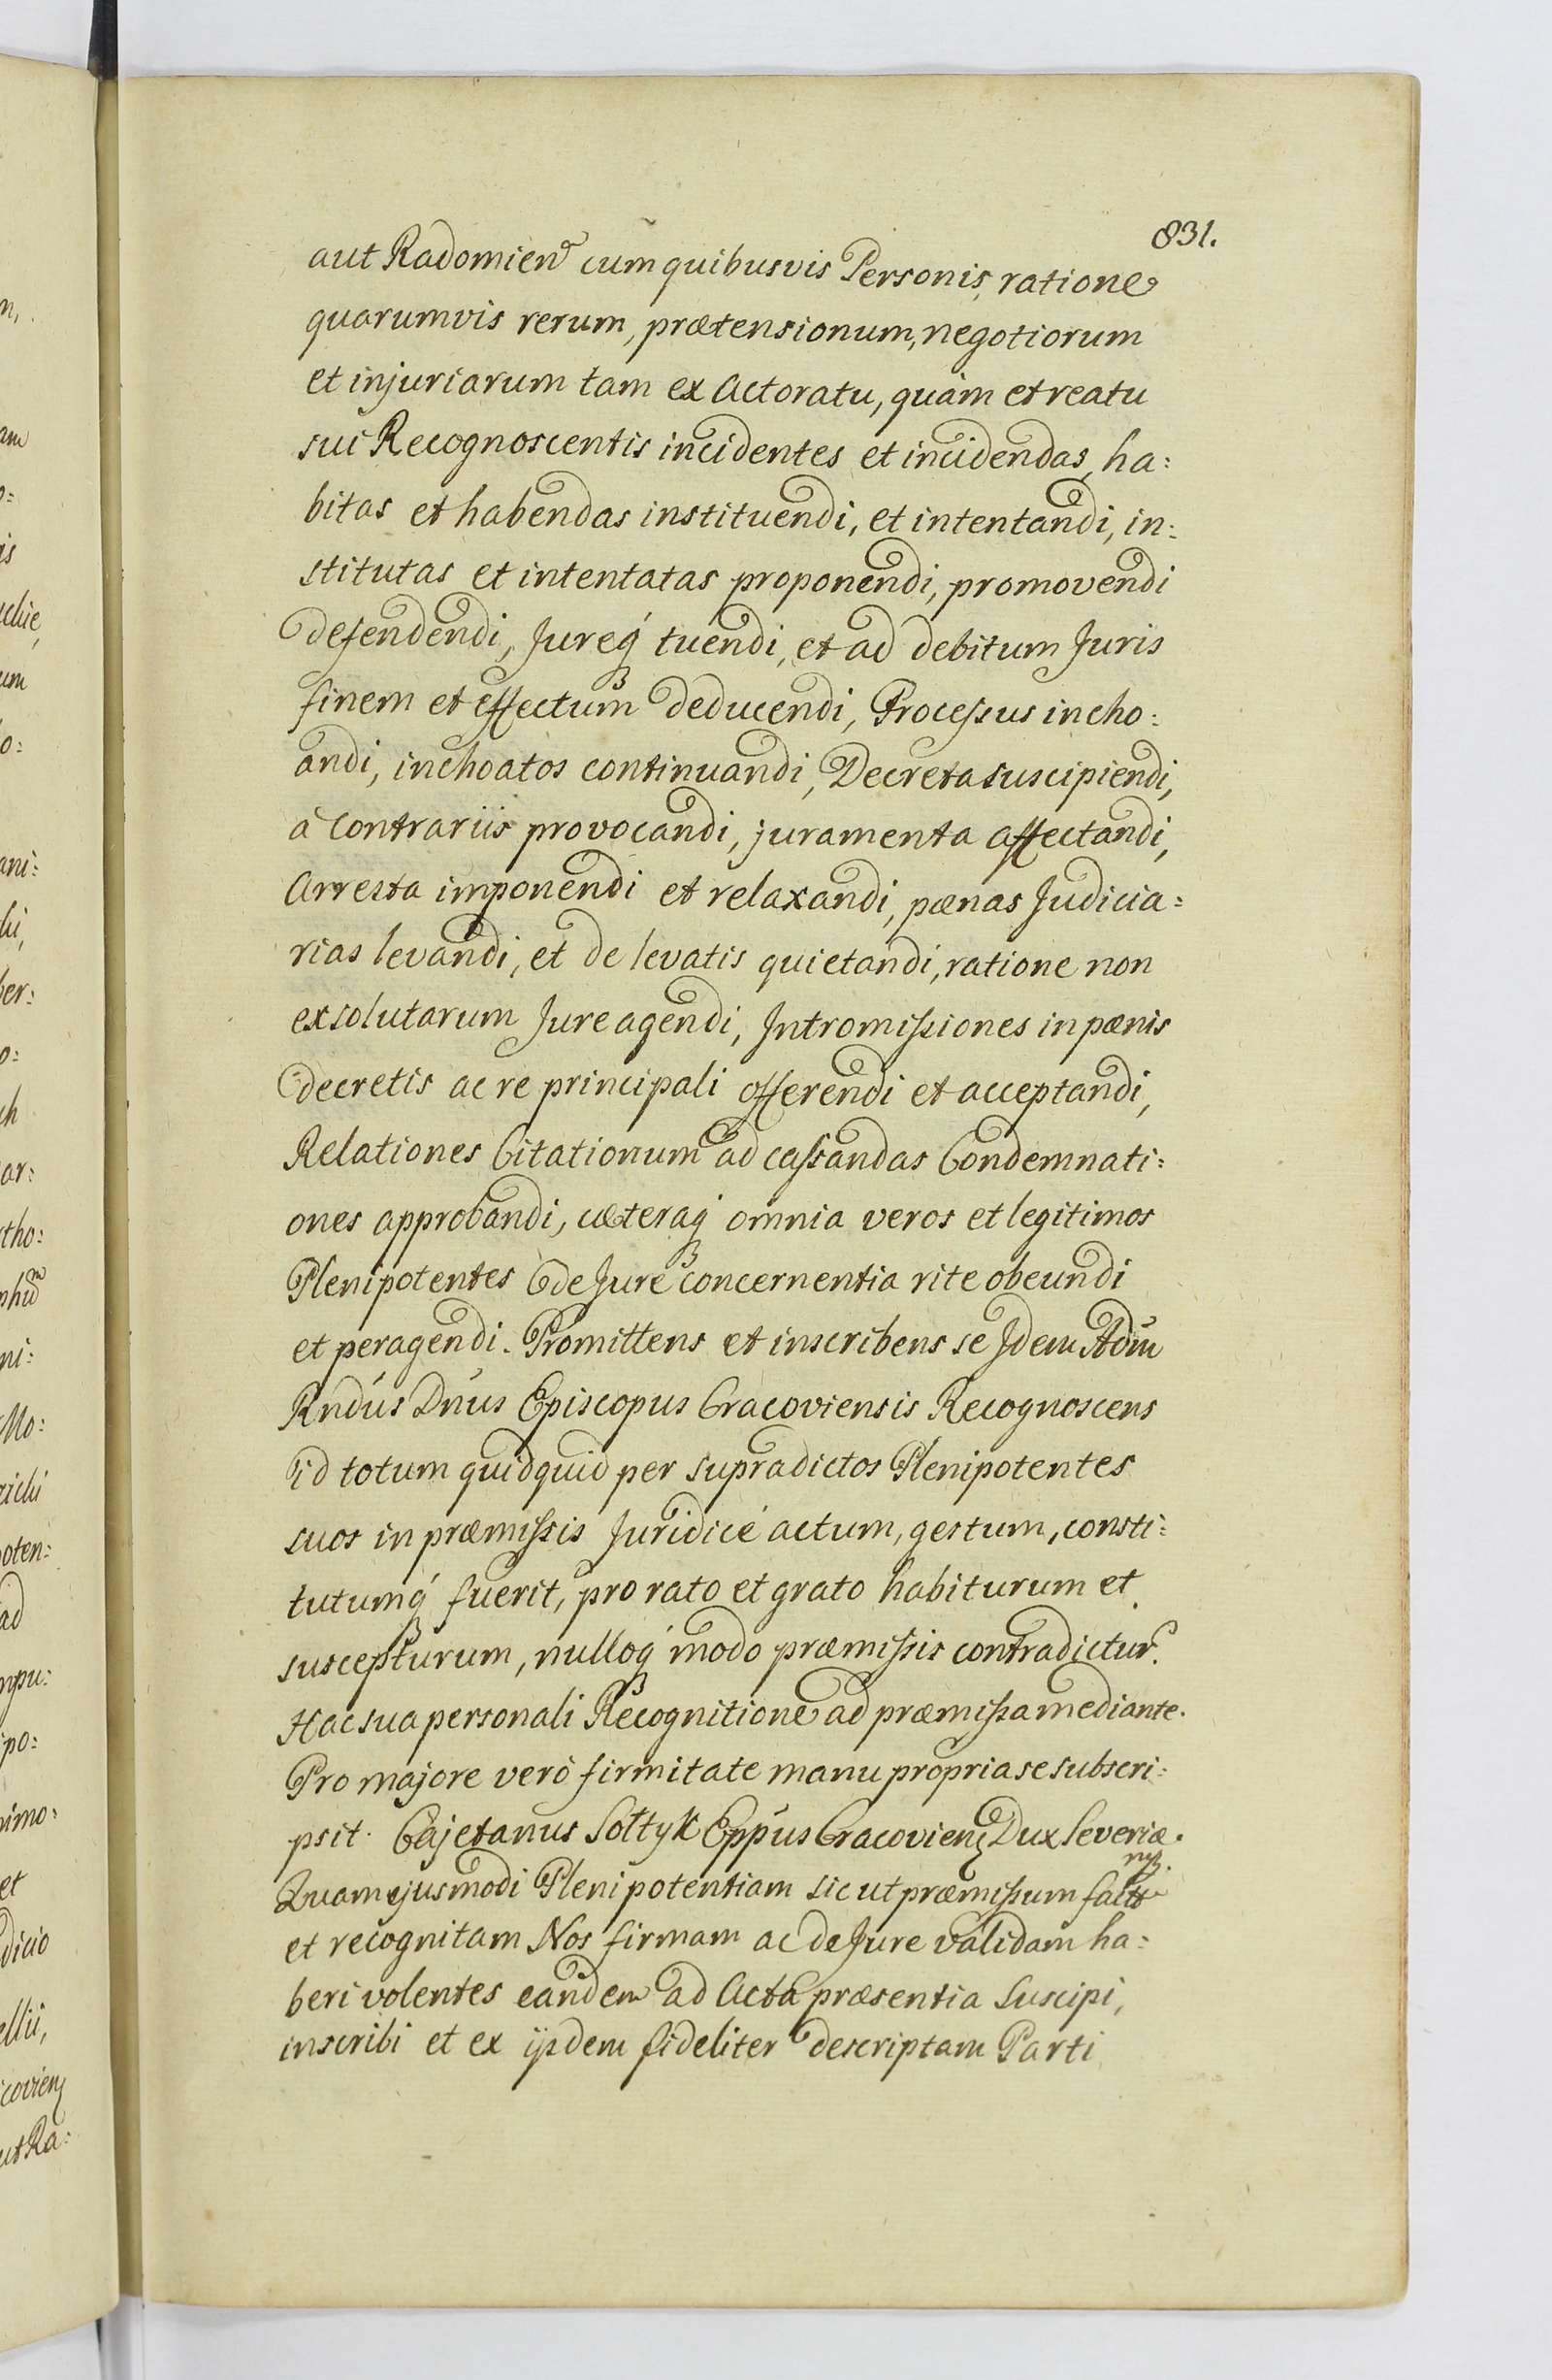 831.
aut Radomien cum quibusvis Personis, ratione
quarumvis rerum, prætensionum, negotiorum
et injuriarum tam ex Actoratu, quàm et reatu
sui Recognoscentis incidentes et incidendas, ha:
bitas et habendas instituendi, et intentandi, in:
stitutas et intentatas proponendi, promovendi
defendendi, Jureq́ tuendi, et ad debitum Juris
finem et effectum deducendi, Processus incho:
andi, inchoatos continuandi, Decreta suscipiendi,
à Contrariis provocandi, juramenta affectandi,
Arresta imponendi et relaxandi, pænas Judicia:
rias levandi, et de levatis quietandi, ratione non
exsolutarum Jure agendi, Intromissiones in pænis
decretis ac re principali offerendi et acceptandi,
Relationes Citationum ad cassandas Condemnati:
ones approbandi, cæteraq́ omnia veros et legitimos
Plenipotentes de Jure concernentia rite obeundi
et peragendi. Promittens et inscribens se Idem Adm̃
Rndús Dnús Episcopus Cracoviensis Recognoscens
id totum quidquid per supradictos Plenipotentes
suos in præmissis Juridicé actum, gestum, consti:
tutumq́ fuerit, pro rato et grato habiturum et
suscepturum, nulloq́ modo præmissis contradictur.
Hac sua personali Recognitione ad præmissa mediante.
Pro majore verò firmitate manu propria se subscri:
psit. Cajetanus Sołtyk Eppús Cracovien Dux Severiæ.
mp.
Quam ejusmodi Plenipotentiam sic ut præmissum
et recognitam Nos firmam ac de Jure validam ha:
beri volentes eandem ad Acta præsentia Suscipi,
inscribi et ex ijsdem fideliter descriptam Parti